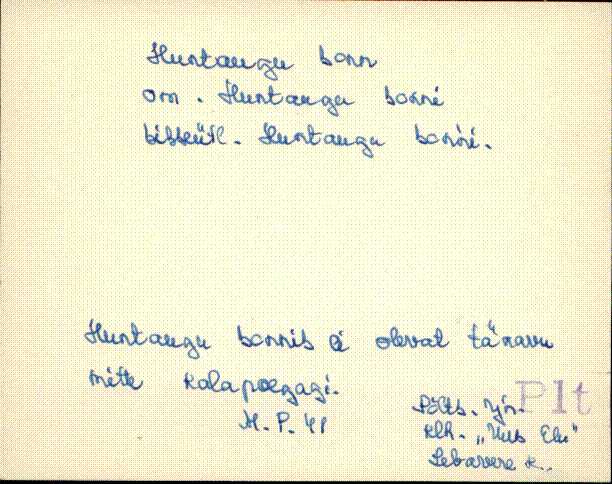 Huntaugu sonn
om. Huntaugu sonni
sisseütl. Huntaugu sonni.
Huntaugu sonnis ei olevat tänavu
mitte kalapoegagi.
M. P. 41
Plt
Põlts. rjn.
klh. „Uus Elu"
Lebavere k.